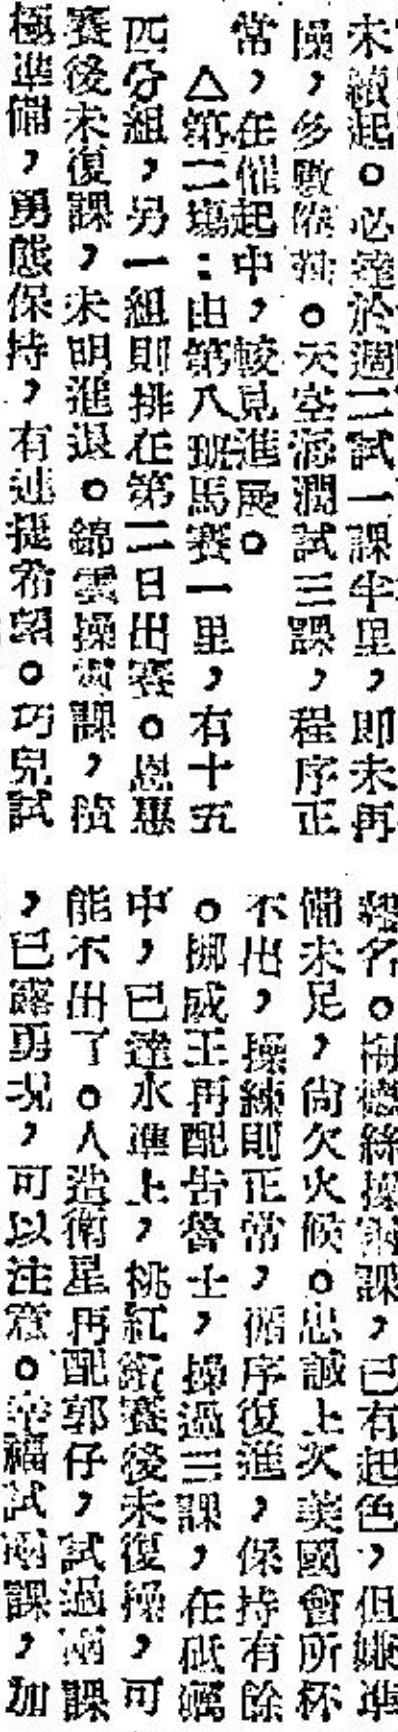 未續起。必達於週二試一課半里，即未再
操，多數維持。天空海濶試三課，程序正
常，在催起中，較見進展。
△第二塲：由第八班馬賽一里，有十五
匹分組，另一組則排在第二日出賽。恩惠
賽後未復課，未明進退。錦雲操兩課，積
極準備，勇態保持，有連捷希望。巧兒試
報名。梅德絲操兩課，已有起色，但嫌準
備未足，尙欠火候。忠誠上次美國會所杯
不出，操練則正常，循序復進，保持有餘
。挪威王再配告魯士，操過三課，在砥礪
中，已達水準上，桃紅賽後未復操，可
能不出了。人造衛星再配郭仔，試過兩課
，已露勇况，可以注意。幸福試兩課，加